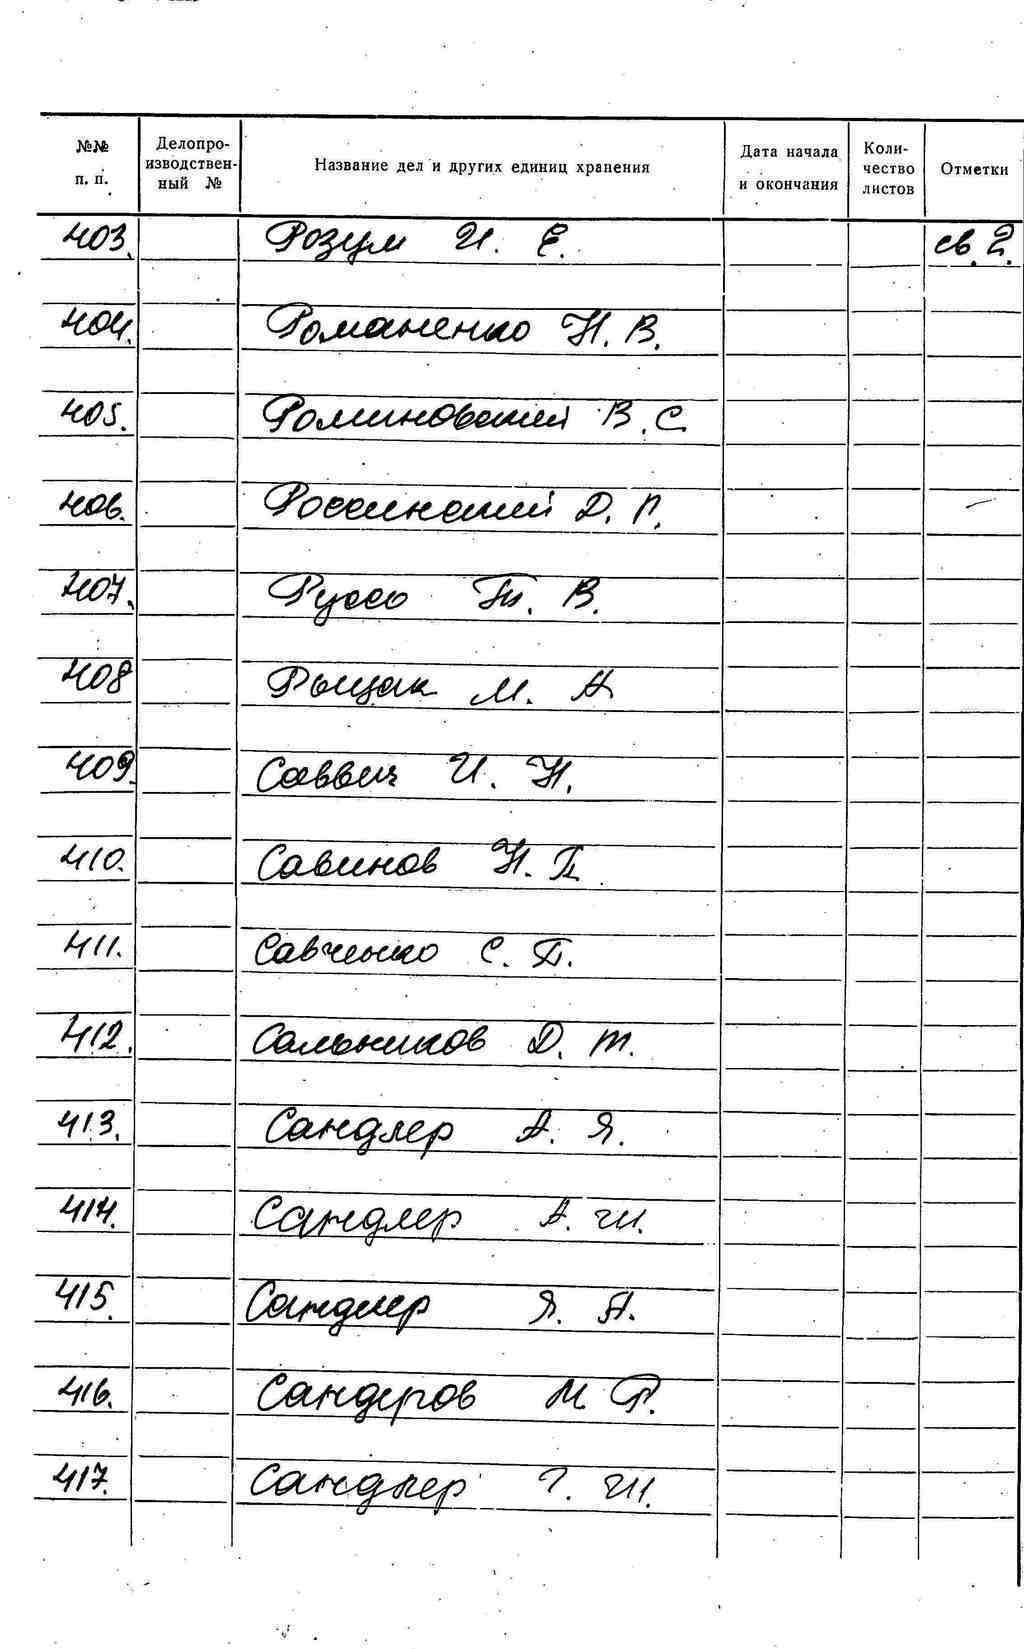 №№ п. п. Делопро-изводствен-ный № Название дел и других единиц хранения Дата начала и окончания Коли-чество листов Отметки
403. Розум И. Е. св. 2.
404. Романенко Н. В.
405. Роминовский В. С.
406. Россинский Д. П.
407. Руссо Т. В.
408 Рыщак М. А
409. Саввич И. Н.
410. Савинов Н. П.
411. Савченко С. П.
412. Сальников Д. Т.
413. Сандлер А. Я.
414. Сандлер А. Ш.
415. Сандлер Я. А.
416. Сандеров М. Р.
417. Сандлер Г. Ш.